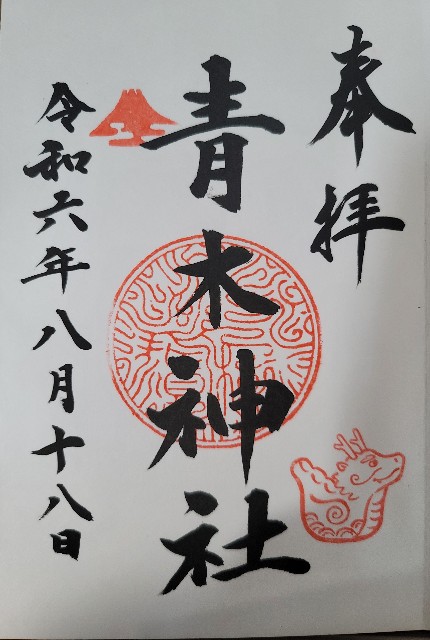 奉拝
青木神社
令和六年八月十八日